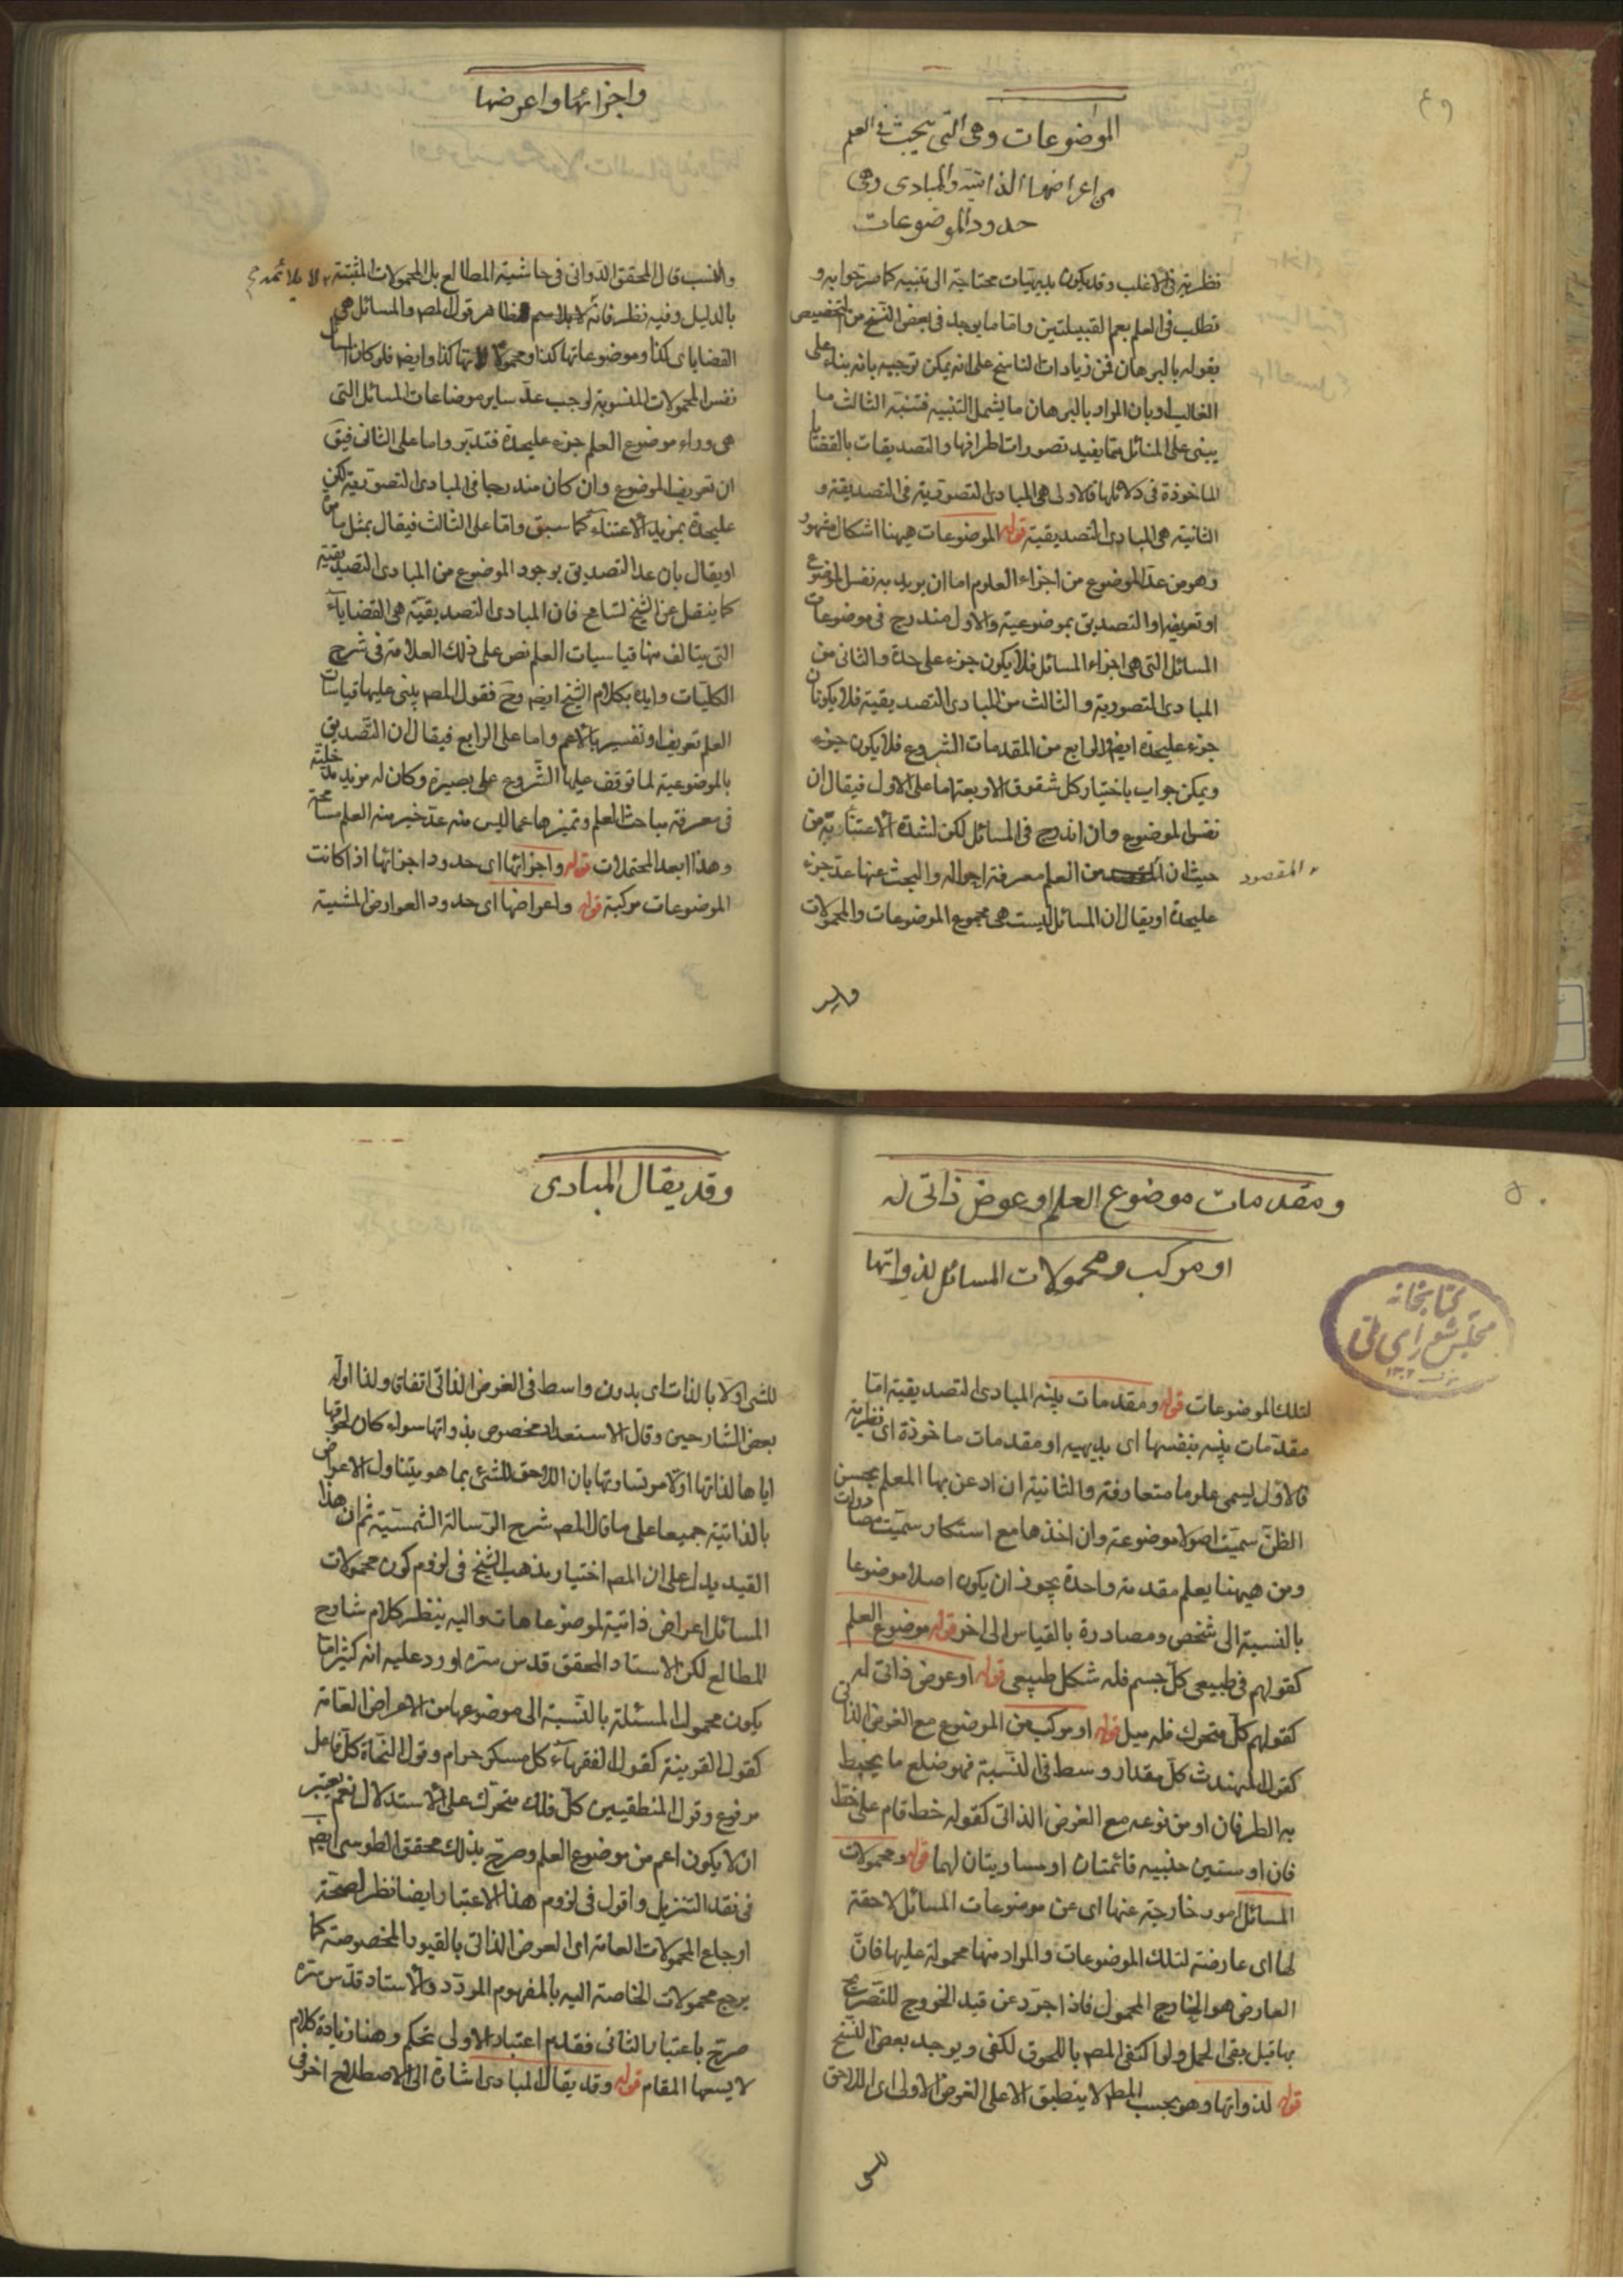 ٤٩
الموضوعات وهى التى يبحث فى العلم
من اعراضها الذاتية والمبادى وهى
حدود الموضوعات
نظرية فى الاغلب وقد يكون بديهيات محتاجة الى تنبيه كما صرحوا به و
تطلب فى العلم يعم القبيلتين واما ما يوجد فى بعض النسخ من التخصيص
بقوله بالبرهان فمن زيادات الناسخ على انه يمكن توجيهه بانه بناء على
الغالب او بان المراد بالبرهان ما يشمل التنبيه فتنبه الثالث ما
يبنى على المسائل مما يفيد تصورات اطرافها والتصديقات بالقضايا
الماخوذة فى دلائلها فالاولى هى المبادى التصورية فى التصديقية و
الثانية هى المبادى التصديقية قوله الموضوعات هيهنا اشكال مشهور
وهو من عد الموضوع من اجزاء العلوم اما ان يريد به نفس الموضوع
او تعريفه او التصديق بموضوعيته والاول مندرج فى موضوعات
المسائل التى هى اجزاء المسائل فلا يكون جزء على حدة والثانى من
المبادى التصورية والثالث من المبادى التصديقية فلا يكونان
جزء عليحدة ايضا والرابع من المقدمات الشروع فلا يكون جزء
ويمكن جواب باختيار كل شقوق الاربعة اما على الاول فيقال ان
نفس الموضوع وان اندرج فى المسائل لكن لشدة الاعتناء به من
حيث ان من العلم معرفة احواله والبحث عنها عد جزء
المقصود
عليحدة او يقال ان المسائل ليست هى مجموع الموضوعات والمحمولات
واجزائها واعرضها
والنسب قال المحقق الدوانى فى حاشية المطالع بل المحمولات المثبتة لا يلائمه
بالدليل وفيه نظر فانه ظاهر قول المص والمسائل هى
القضايا كذا وموضوعاتها كذا ومحمولاتها كذا وايضا فلو كان المسائل
نفس المحمولات المنسوبة لوجب عد ساير موضاعات المسائل التى
هى وراء موضوع العلم جزء عليحدة فتدبر واما على الثانى فيق
ان تعريف الموضوع وان كان مندرجا فى المبادى التصورية لكن
عليحدة بمزيد الاعتناء كما سبق واما على الثالث فيقال بمثل ما مر
او يقال بان عد التصديق بوجود الموضوع من المبادى التصديقية
كما ينقل عن الشيخ تسامح فان المبادى التصديقية هى القضايا
التى يتالف منها قياسيات العلم نص على ذلك العلامة فى شرح
الكليات وايده بكلام الشيخ ايضا وح فقول المص يبنى عليها قياسات
العلم تعريف او تفسير بالاعم واما على الرابع فيقال ان التصديق
بالموضوعية لما توقف عليها الشروع على بصيرة وكان له مزيد مدخلية
فى معرفة مباحث العلم وتميزها عما ليس منه عد خبر منه العلم مسامحة
وهذا ابعد المحتملات قوله واجزائها اى حدود اجزائها اذا كانت
الموضوعات مركبة قوله واعراضها اى حدود العوارض المثبتة
٥٠
ومقدمات موضوع العلم او عوض ذاتى له
او مركب ومحمولات المسائل لذواتها
كتابخانه
مجلس شوراى ملى
لتلك الموضوعات قوله ومقدمات بينة المبادى التصديقية اما
مقدمات بينة بنفسها اى بديهية او مقدمات ماخوذة اى نظرية
فالاول يسمى علوما متعارفة والثانية ان ادعن بها المعلم بحسن
الظن سميت اصولا موضوعة وان اخذها مع استنكار سميت مصادرات
ومن هيهنا يعلم مقدمة واحدة يجوز ان يكون اصلا موضوعا
بالنسبة الى شخص ومصادرة بالقياس الى اخر قوله موضوع العلم
كقولهم فى طبيعى كل جسم فله شكل طبيعى قوله او عوض ذاتى له
كقولهم كل متحرك فله ميل قوله او مركب من الموضوع مع العرض الذاتى
كقول المهندث كل مقدار وسط فى النسبة فهو ضلع ما يحيط
به الطرفان او من نوعه مع العرض الذاتى كقوله خط قام على خط
فان او ستين جنبيه قائمتان او مساويتان لهما قوله ومحمولات
المسائل امور خارجة عنها اى عن موضوعات المسائل لاحقة
لها اى عارضة لتلك الموضوعات والمراد منها محمولة عليها فان
العارض هو الخارج المحمول فاذا جرد عن قيد الخروج للتصريح
بها قبل بقى الحمل ولو اكتفى المص باللحوق لكفى ويوجد بعض النسخ
قوله لذواتها وهو بحسب الظ لا ينطبق الا على العرض الاولى اى اللاحق
للشى
وقد يقال المبادى
للشى اولا بالذات اى بدون واسط فى العرض الذاتى اتفاق ولذا اوله
بعض الشارحين وقال الاستعداد مخصوص بذواتها سواء كان لحوقها
اياها لذاتها اولامر تساوتها بان اللاحق للشئ بما هو يتناول الاعراض
بالذاتية جميعا على ما قال المص شرح الرسالة الشمسية ثم ان هذا
القيد يدل على ان المص اختيار مذهب الشيخ فى لزوم كون محمولات
المسائل اعراض ذاتية لموضوعاهات واليه ينظر كلام شارح
المطالع لكن الاستاد المحقق قدس سره اورد عليه انه كثيراما
يكون محمول المسئلة بالنسبة الى موضوعها من الاعراض العامة
كقول القرينة كقول الفقهاء كل مسكر حرام وقول النحاة كل فاعل
مرفوع وقول المنطقيين كل فلك متحرك على الاستدلال نعم يعتبر
ان لا يكون اعم من موضوع العلم وصرح بذلك محقق الطوسى ايضا
فى نقد التنزيل واقول فى لزوم هذا الاعتبار ايضا نظر لصحة
ارجاع المحمولات العامة اى العوض الذاتى بالقيود المخصوصة كما
يرجع محمولات الخاصة اليه بالمفهوم المردد والاستاد قدس سره
صرح باعتبار الثانى فقديم اعتبار الاولى تحكم وهنا زيادة كلام
لا يسعها المقام قوله وقد يقال المبادى اشارة الى الاصطلاح اخر فى